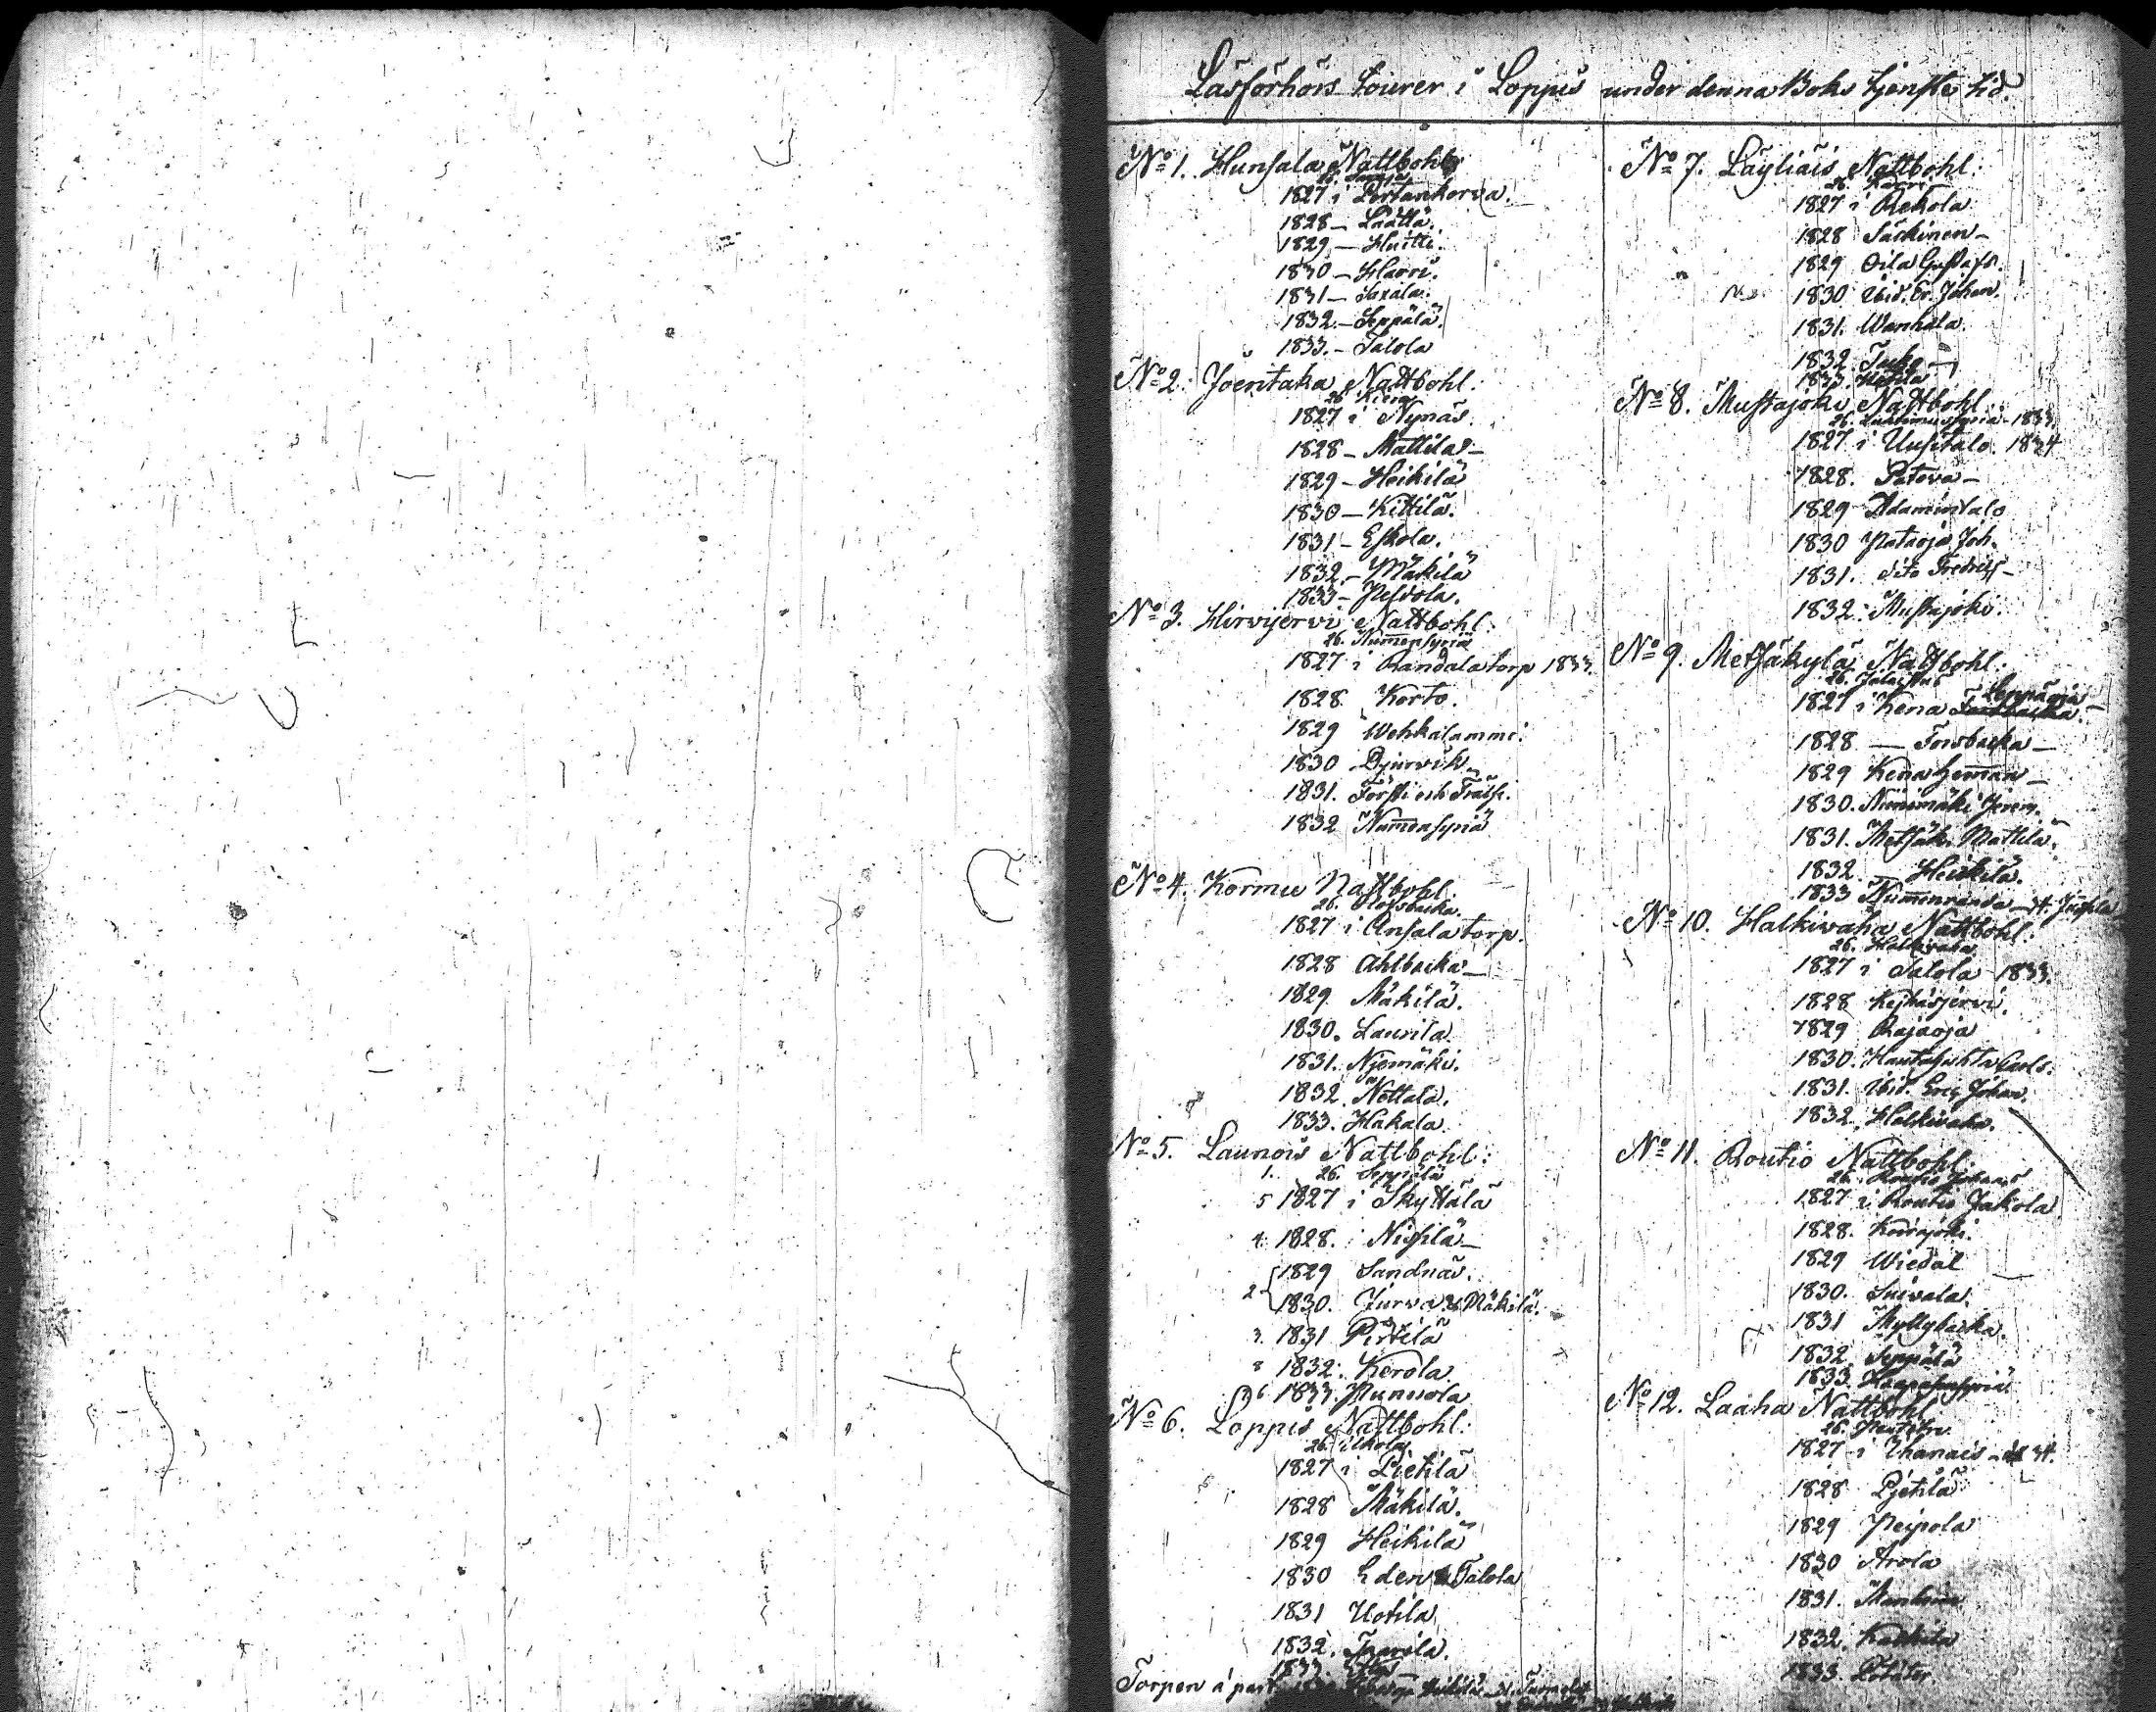 Läsförhörs tourer i Loppis under denna Boks tjenste tid.
No 1. Hunsala Nattbohl
1827 i Pertankorva.
1828 – Läättä.
1829 – Huitti.
1830 – Harri.
1831 – Saxala.
1832. – Seppälä.
1833. – Talola
No 2. Joentaka Nattbohl:
1827 i Nynäs.
1828 – Mattila –
1829 – Heikilä
1830 – Kittilä.
1831 – Eskola.
1832 – Mäkilä
1833 – Peldola.
No 3. Hirvijervi Nattbohl:
26. Num̅ensyriä
1827 i Randala torp 1833.
1828. Korto.
1829 Wehkalammi.
1830 Djurvik
1831. Försti och Träsk.
1832 Num̅ensyriä
No 4. Kormu Nattbohl.
26. Olofsbacka.
1827 i Ansala torp.
1828 Ahlbacka –
1829. Mäkilä.
1830. Laurila.
1831. Njemäki.
1832. Nottala.
1833. Hakala.
No 5. Launois Nattbohl:
1. 26. Seppälä
5 1827 i Skyttälä
4. 1828. Nissilä –
1829 Sandnäs.
2 1830. Jurva & Mäkilä.
3. 1831 Pirtilä
8 1832. Kerola
6 1833. Punnola
No 6. Loppis Nattbohl:
26. Ilkola
1827 i Pietilä
1828 Mäkilä.
1829 Heikilä
1830 Eden & Talola
1831 Uotila
1832. Taavila.
1833.
Torpen á part
No 7. Läyliäis Nattbohl:
1827 i Rekola
1828 Säskinen –
1829 Oila Gustafs.
1830 Ibid. Er. Johan.
1831. Wanhala.
1832. Tuko –
1833.
No 8. Mustajoki Nattbohl.
1833
1827 i Uusitalo. 1834
1828. Patova –
1829 Adamintalo
1830 Pataoja Joh.
1831. dito Fredrics –
1832. Mustajoki.
No 9. Metsäkylä Nattbohl:
Leppäoja –
1827 i Kena Forsbacka
1828 – Forsbacka –
1829 Kena hem̅an –
1830. Niinimäki Jerem.
1831. Metsäk. Mattila.
1832 – Heikilä.
1833 Num̅enranda – 34. Jussila
No 10. Halkivaha Nattbohl:
26. Halkivaha
1827 i Talola 1833.
1828 Kejhäsjervi.
1829 Rajaoja
1830. Hautahuhta Carls.
1831. Ibid. Eric Johan.
1832. Halkivaha.
No 11. Routio Nattbohl.
26. Routio Johans
1827 i Routio Jakola
1828. Koirajoki.
1829 Wiedal
1830. Suivala.
1831 Myllybacka.
1832. Seppälä
1833. Haapasensyriä
No 12. Laaha Nattbohl
1827 i Ihanais – 34.
1828 Pjetilä
1829 Peipola
1830 Arola
1831.
1832. Kaukila
1833.